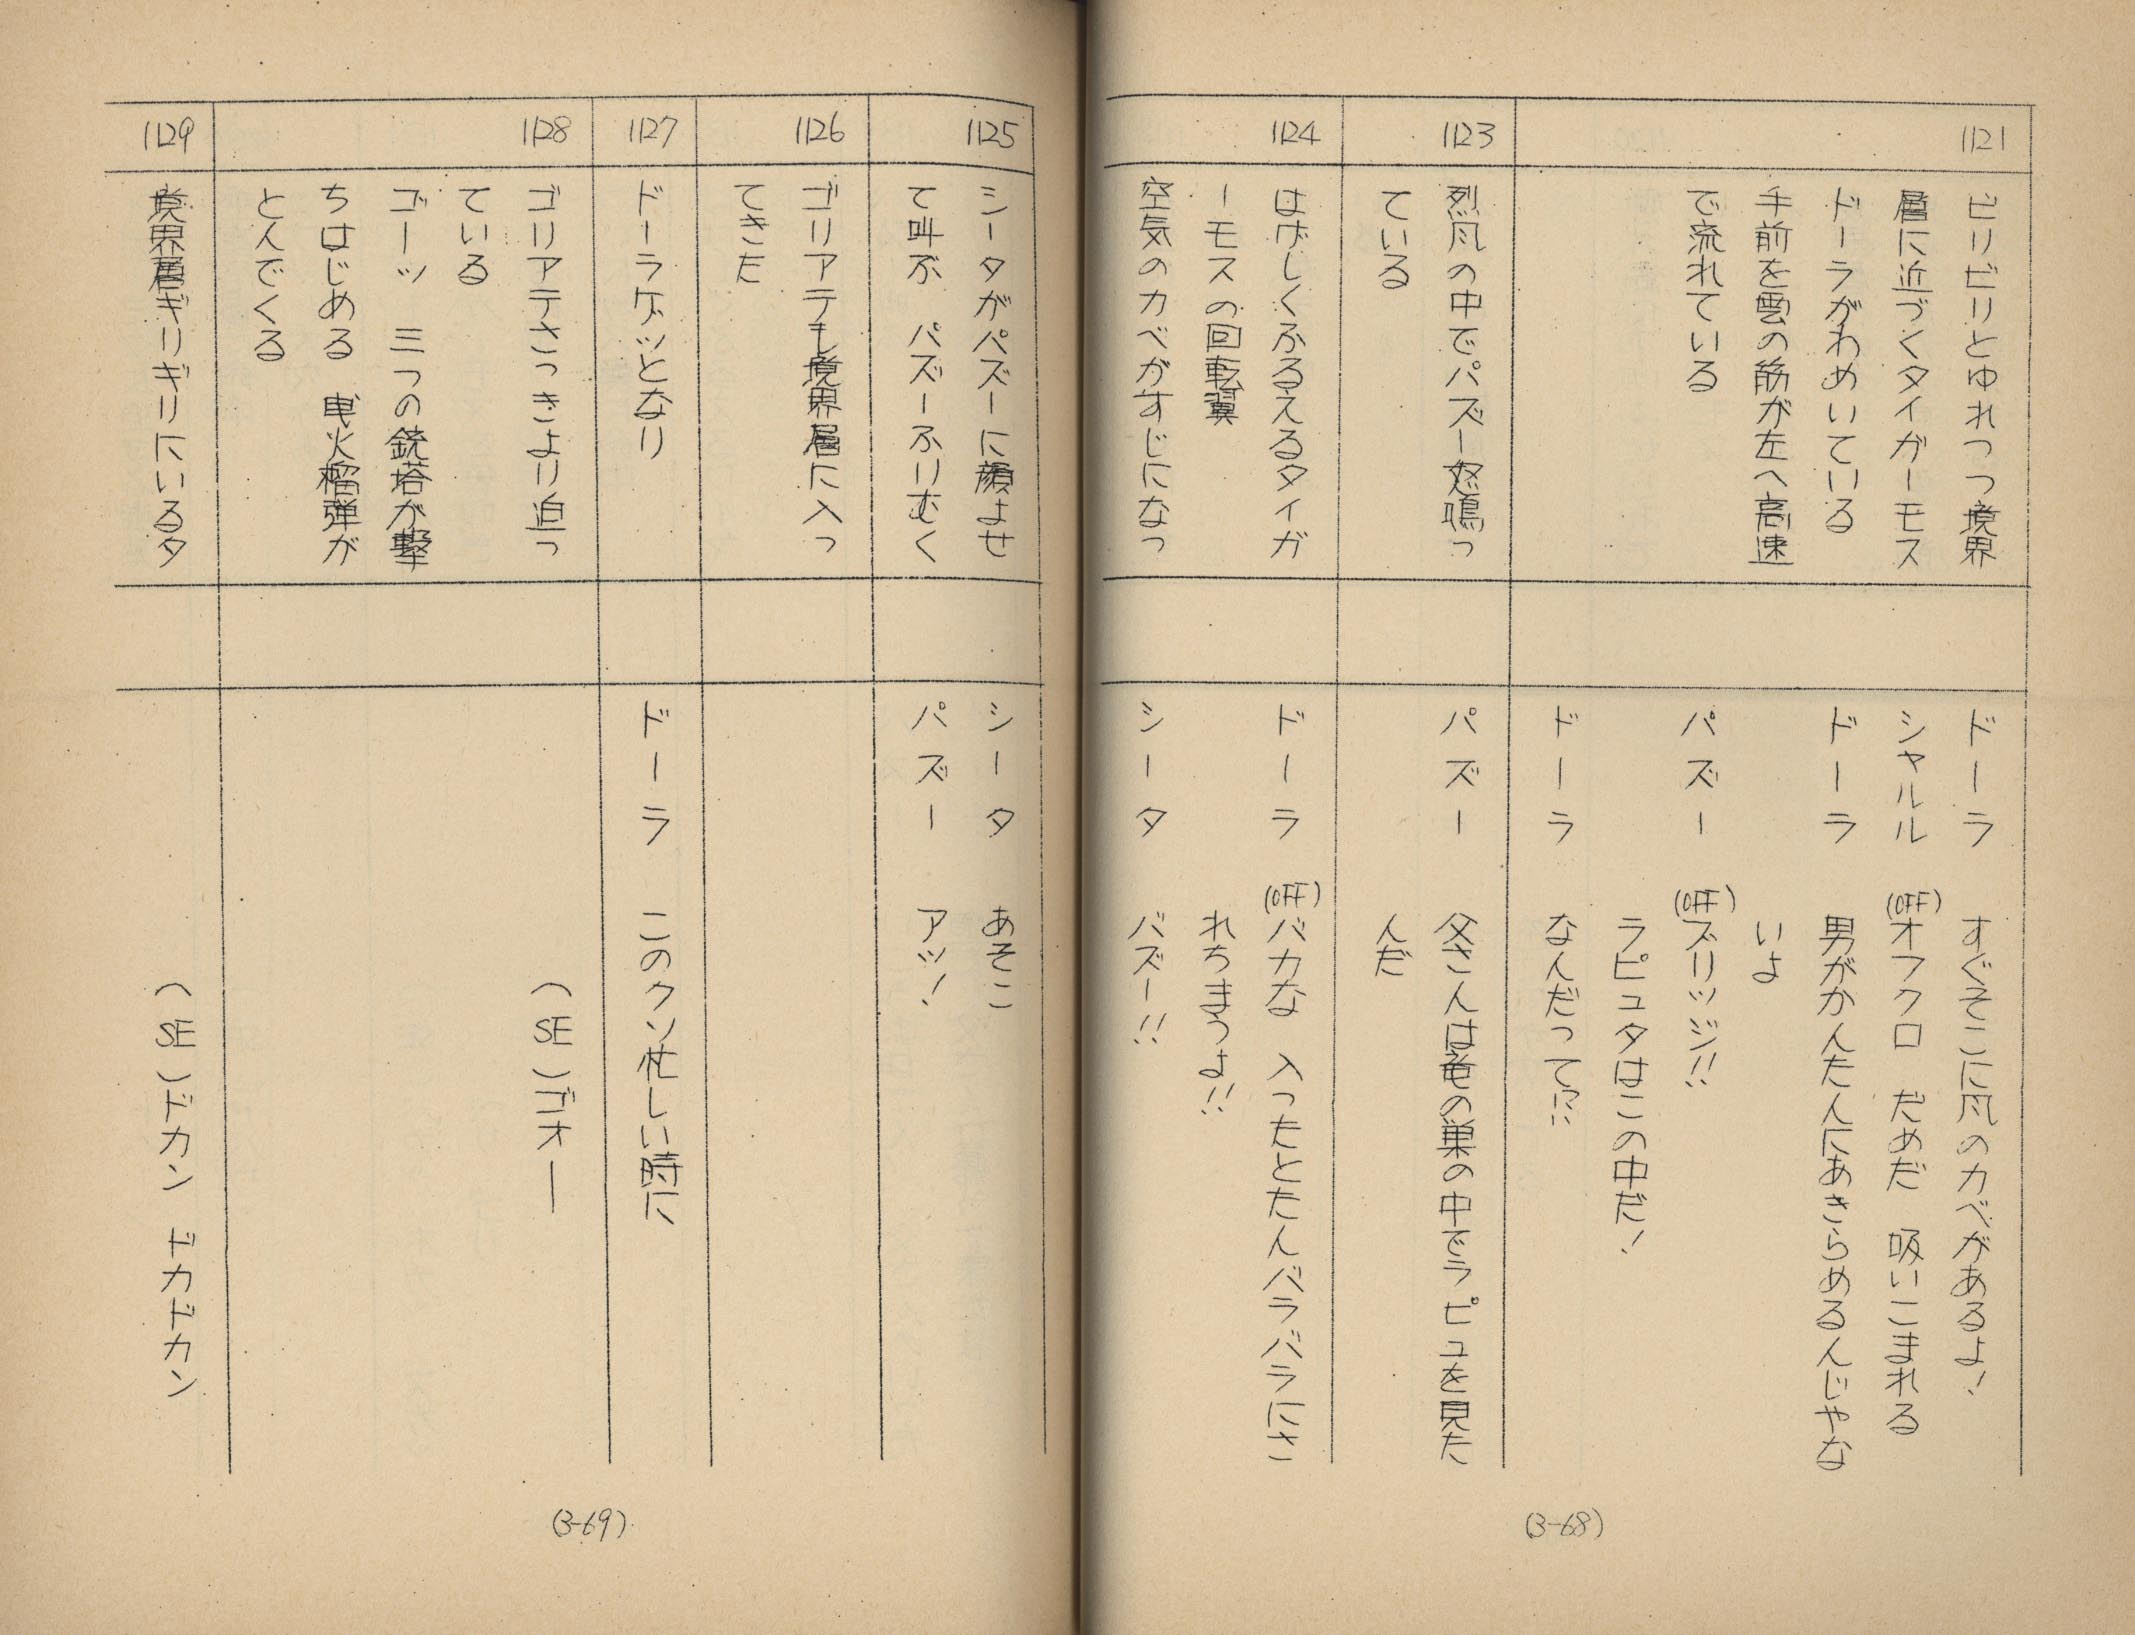 1121
ビリビリとゆれつつ境界
層に近づくタイガーモス
ドーラがわめいている
手前を雲の筋が左へ高速
で流れている
ドーラ　すぐそこに風のカベがあるよ！
シャルル　(OFF)オフクロ　だめだ　吸いこまれる
ドーラ　男がかんたんにあきらめるんじゃな
いよ
パズー　(OFF)ズリッジ!!
ラピュタはこの中だ！
ドーラ　なんだって!?
1123
烈風の中でパズー怒鳴っ
ている
パズー　父さんは竜の巣の中でラピュを見た
んだ
1124
はげしくふるえるタイガ
ーモスの回転翼
空気のカベがすじになっ
ドーラ　(OFF)バカな　入ったとたんバラバラにさ
れちまうよ!!
シータ　バズー!!
(3-68)
1125
シータがパズーに顔よせ
て叫ぶ　パズーふりむく
シータ　あそこ
パズー　アッ！
1126
ゴリアテも境界層に入っ
てきた
1127
ドーラゲッとなり
ドーラ　このクソ忙しい時に
1128
ゴリアテさっきより迫っ
ている
ゴーッ　三つの銃塔が撃
ちはじめる　曳火榴弾が
とんでくる
(SE)ゴオー
1129
境界層ギリギリにいるタ
(SE)ドカン　ドカドカン
(3-69)